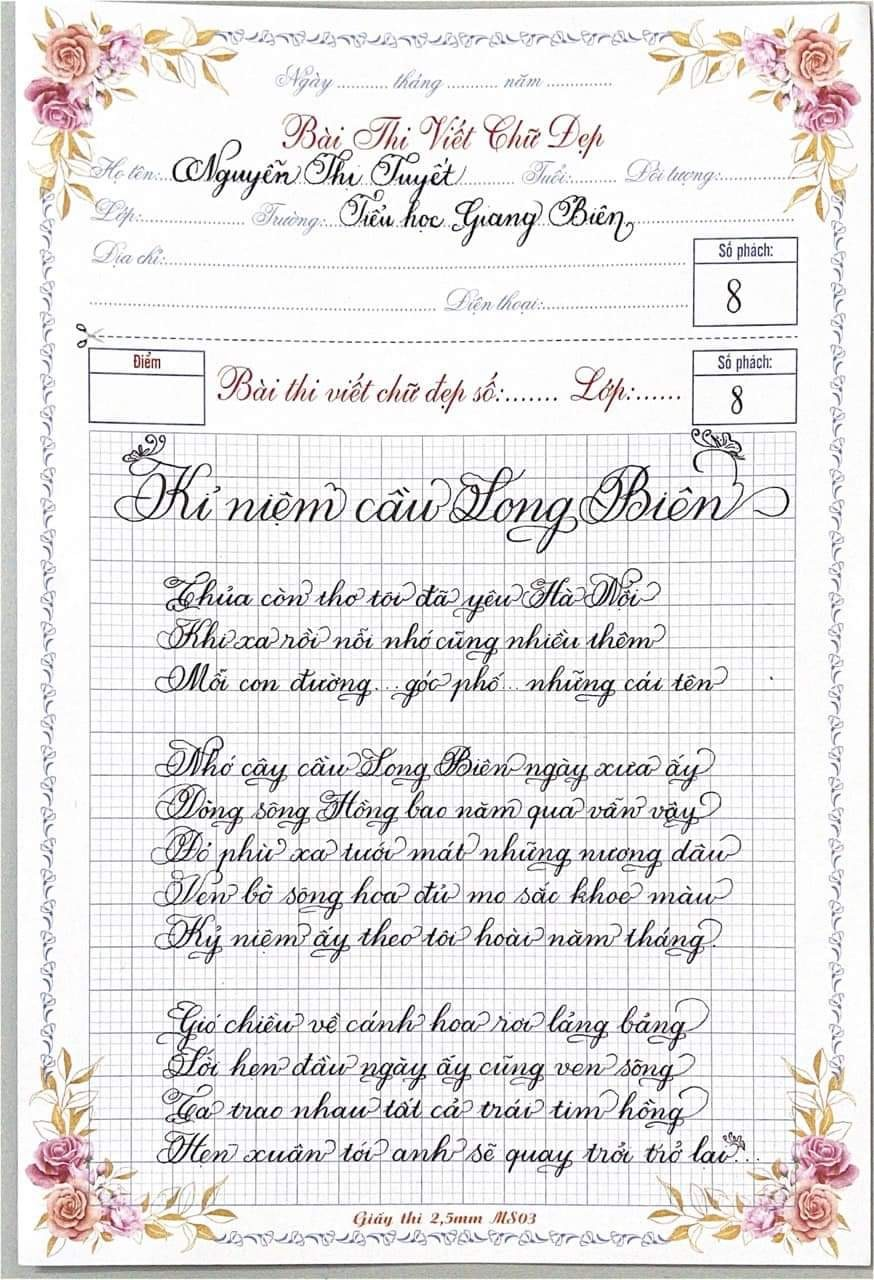 Ngày ........... tháng ........... năm ..............
Bài Thi Viết Chữ Đẹp
Họ tên: Nguyễn Thị Tuyết Tuổi:......... Đối tượng:...............
Lớp:.................. Trường: Tiểu học Giang Biên
Địa chỉ:..............................
Số phách:
8
Điện thoại:..............................
Điểm
Bài thi viết chữ đẹp số:....... Lớp:......
Số phách:
8
Kỉ niệm cầu Long Biên
Thủa còn thơ tôi đã yêu Hà Nội
Khi xa rồi nỗi nhớ cũng nhiều thêm
Mỗi con đường...góc phố...những cái tên
Nhớ cây cầu Long Biên ngày xưa ấy
Dòng sông Hồng bao năm qua vẫn vậy
Đỏ phù xa tưới mát những nương dâu
Ven bờ sông hoa đủ mọ sắc khoe màu
Kỷ niệm ấy theo tôi hoài năm tháng.
Gió chiều về cánh hoa rơi lảng bảng
Lối hẹn đầu ngày ấy cũng ven sông
Ta trao nhau tất cả trái tim hồng
Hẹn xuân tới anh sẽ quay trởi trở lại...
Giấy thi 2,5mm MS03